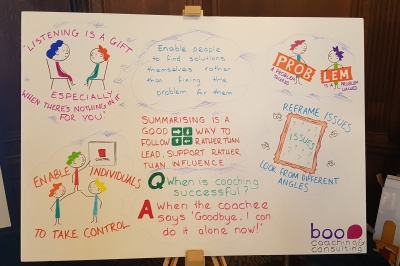 "LISTENING IS A GIFT
ESPECIALLY
WHEN THERE'S NOTHING IN IT
FOR YOU"
Enable people
to find solutions
themselves rather
than fixing the
problem for them
PROB
LEM
A PROBLEM
SHARED
IS A PROBLEM
HALVED
SUMMARISING IS A
GOOD WAY TO
FOLLOW RATHER THAN
LEAD, SUPPORT RATHER
THAN INFLUENCE
REFRAME ISSUES
ISSUES
ISSUES
LOOK FROM DIFFERENT
ANGLES
CONTROL
ENABLE INDIVIDUALS
TO TAKE CONTROL
Q When is coaching
successful?
A When the coachee
says 'Goodbye, I can
do it alone now!'
boo
coaching &
consulting